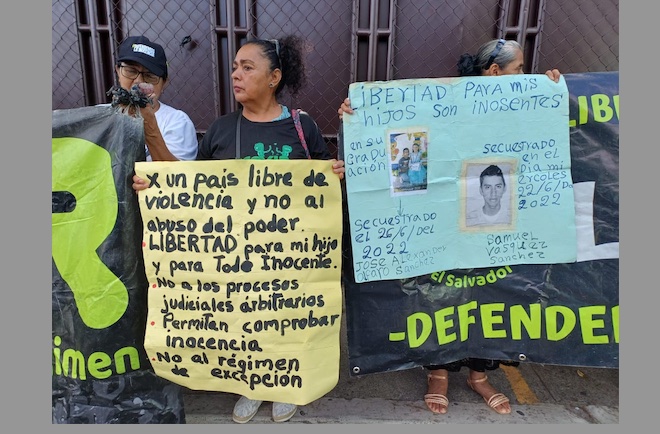 X un país libre de
violencia y no al
abuso del poder.
LIBERTAD para mi hijo
y para Todo Inocente.
No a los procesos
judiciales árbitrarios
Permitan comprobar
inocencia
No al régimen
de excepción
LIBERTAD PARA MIS
HIJOS SON INOSENTES
en su
GRADU
ACIÓN
SECUESTRADO
EL 26/6/DEL
2022
JOSE Alexander
SANCHEZ
SECUESTRADO
en el
DIA mi
ERCOLES
22/6/DO
2022
SAMUEL
VASQUEZ
SANCHEZ
LIBE
El Salvador
-DEFENDER
R
imen